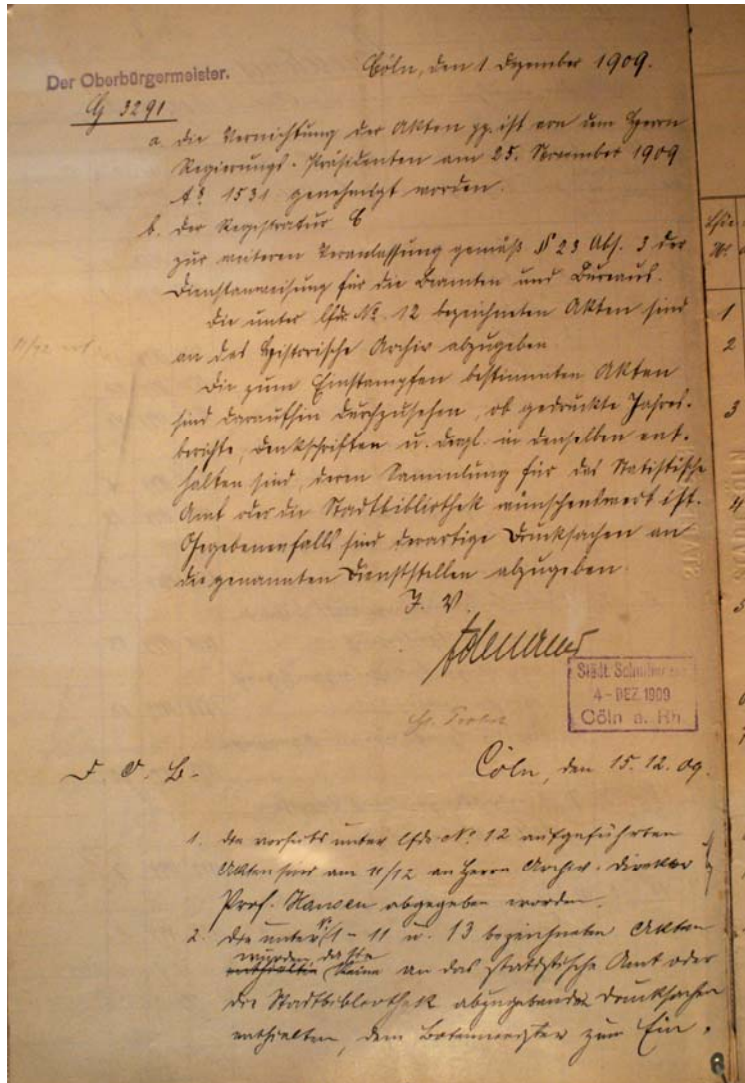 Der Oberbürgermeister.
Cöln, den 1. Dezember 1909.
G 3291.
a. die Vernichtung der Akten pp. ist von dem Herrn
Regierungs-Präsidenten am 25. November 1909
1531 genehmigt worden.
b. der Registratur C
zur weiteren Veranlassung gemäß § 23 Abs. 3 der
Dienstanweisung für die Beamten und Bureaus.
Die unter lfde. No. 12 bezeichneten Akten sind
an das Historische Archiv abzugeben.
Die zum Einstampfen bestimmten Akten
sind daraufhin durchzusehen, ob gedruckte Jahres-
berichte, Denkschriften u. dergl. in denselben ent-
halten sind, deren Sammlung für das Statistische
Amt oder die Stadtbibliothek wünschenswert ist.
Gegebenenfalls sind derartige Drucksachen an
die genannten Dienststellen abzugeben.
J. V.
Städt.
4 - DEZ. 1909
Cöln a. Rh.
Cöln, den 15. 12. 09.
1. Die vorseits unter lfde No. 12 aufgeführten
Akten sind am 11/12 an Herrn Archiv-Direktor
Prof. Hansen abgegeben worden.
2. Die unter No 1 - 11 u. 13 bezeichneten Akten
wurden, da sie
keine an das statistische Amt oder
die Stadtbibliothek abzugebende Drucksachen
enthielten, dem Botenmeister zum Ein-
1
2
3
4
5